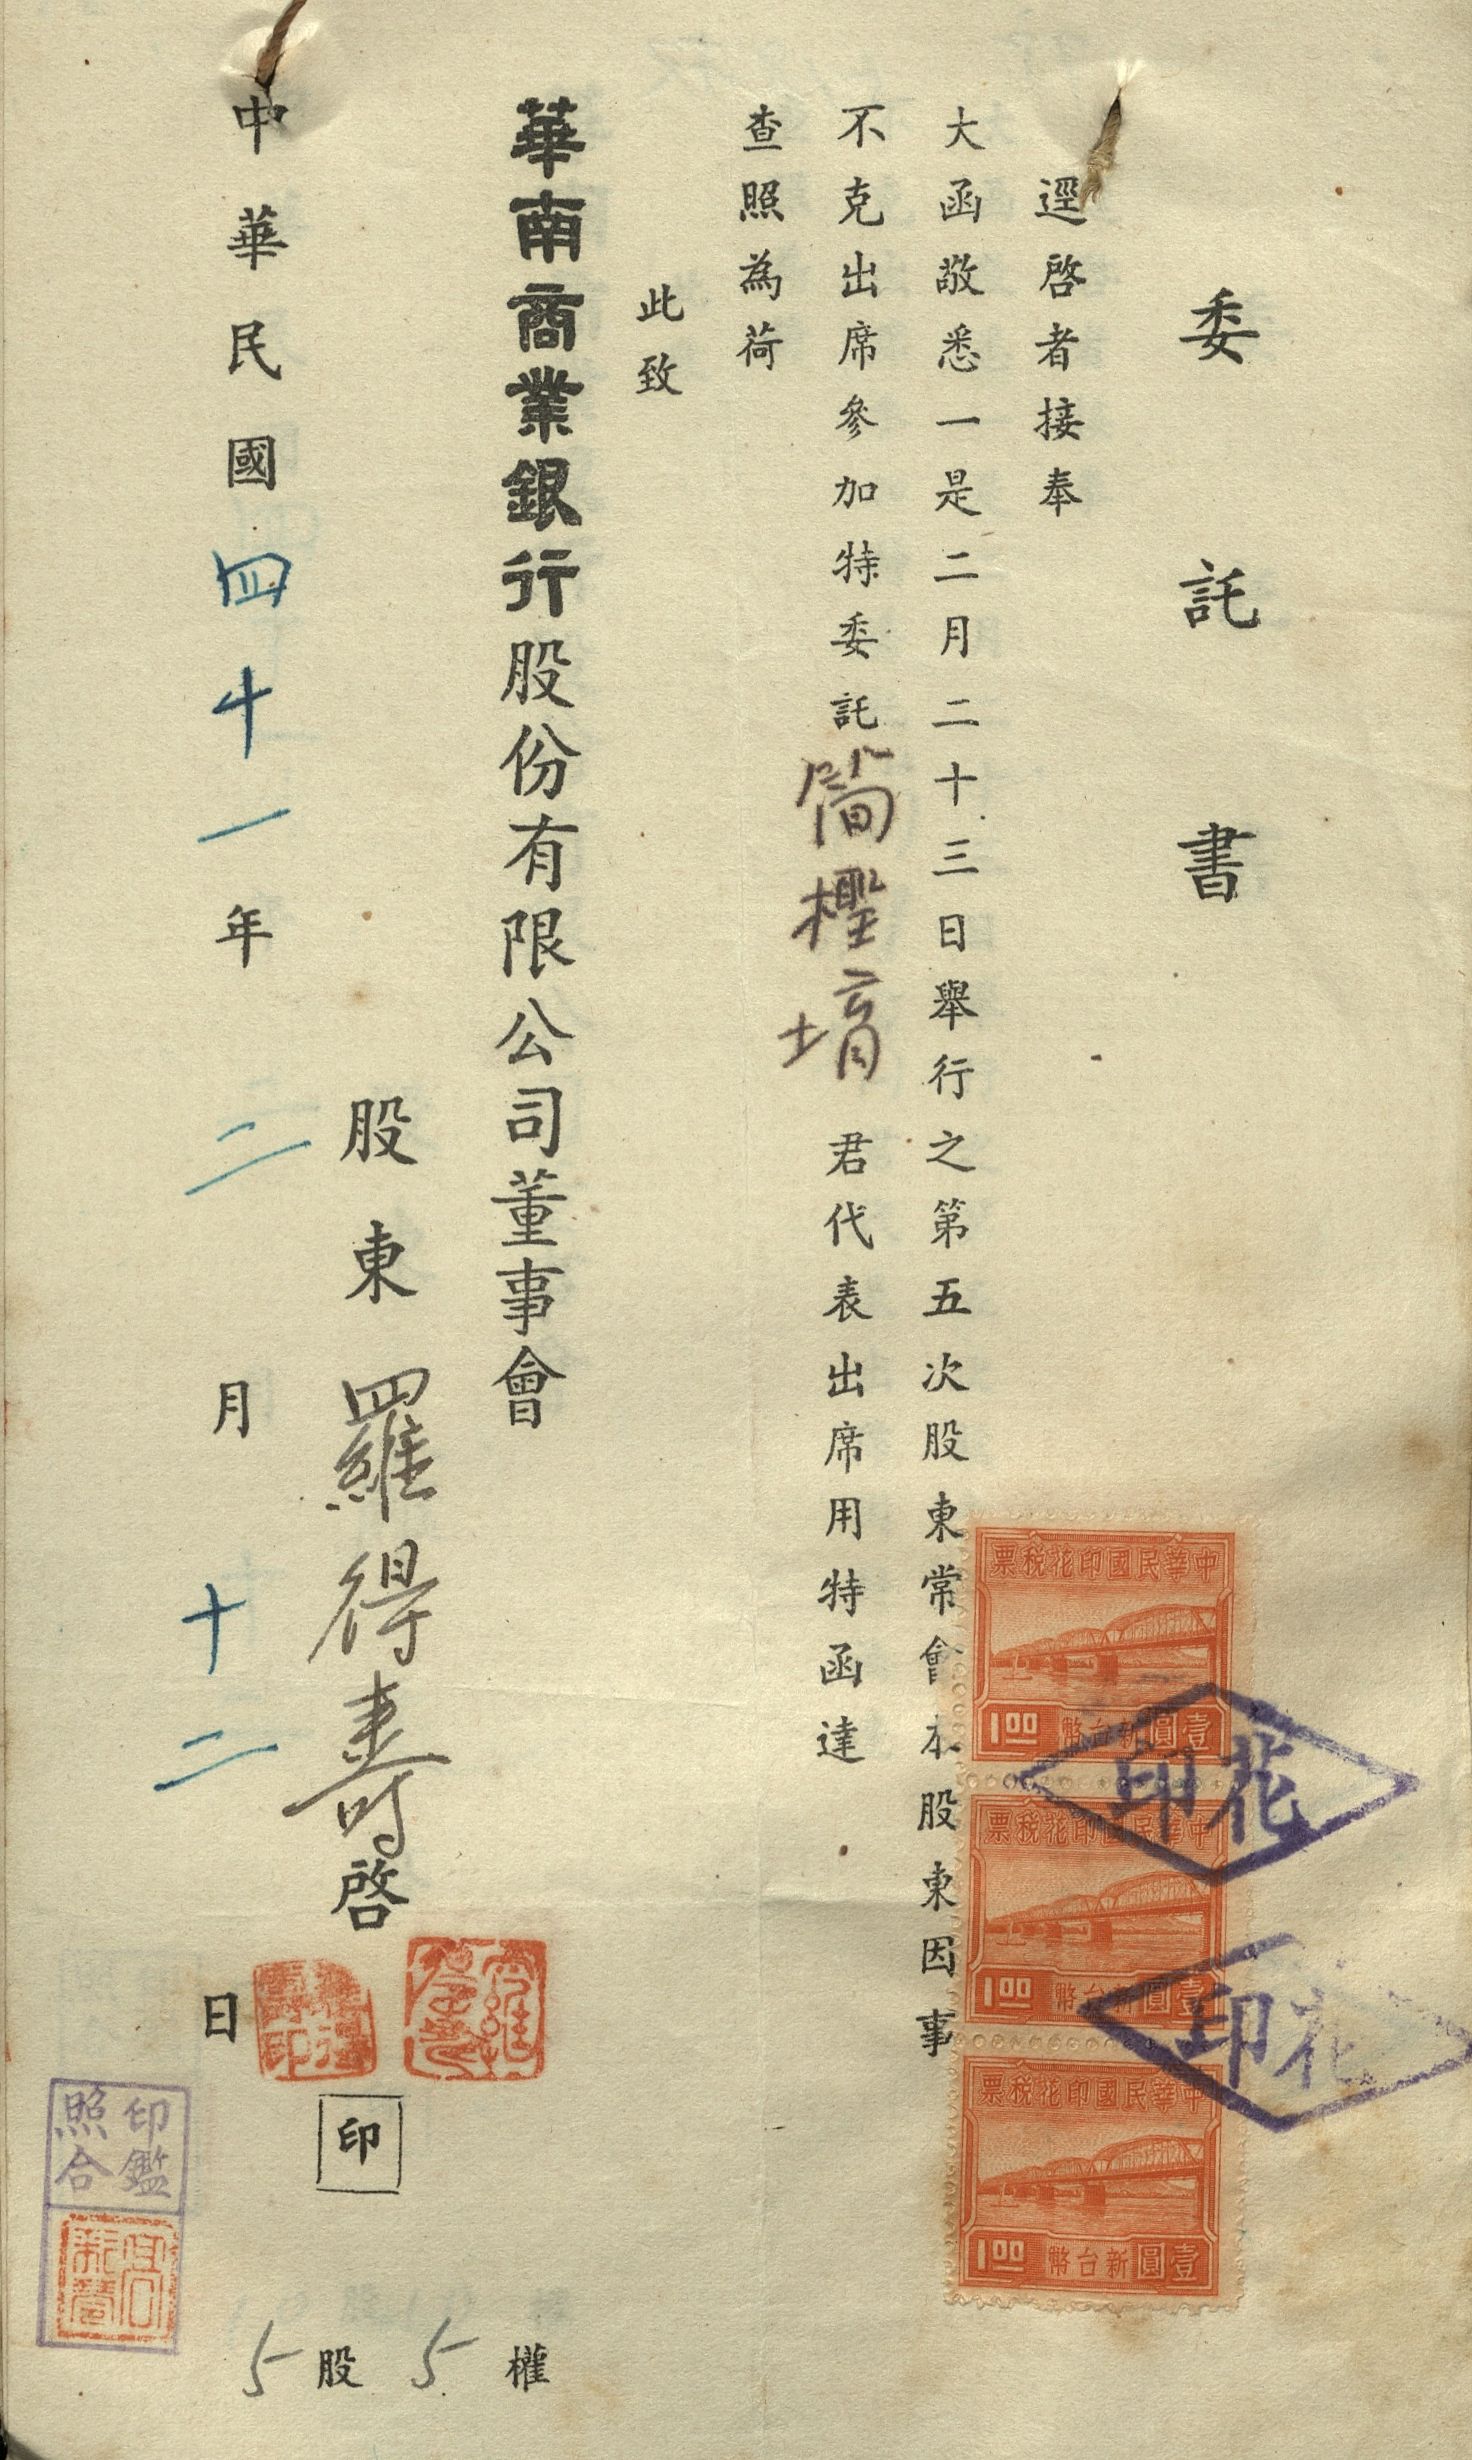 委託書
逕啓者接奉
大函敬悉一是二月二十三日舉行之第五次股東常會本股東因事
不克出席參加特委託簡檉堉君代表出席用特函達
查照為荷
此致
華南商業銀行股份有限公司董事會
股東羅得壽啓
印
中華民國四十一年二月十二日
5股5權
中華民國印花稅票
1.00 新台幣壹圓
中華民國印花稅票
1.00 新台幣壹圓
中華民國印花稅票
1.00 新台幣壹圓
印花
印花
印鑑
照合